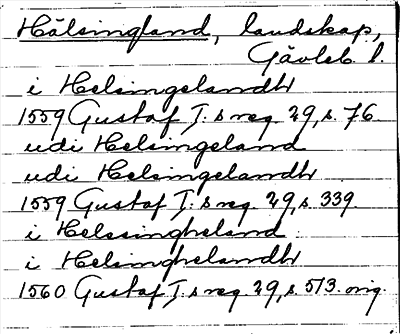 Hälsingland, landskap,
Gävleb. l.
i Helsingelandh
1559 Gustaf I:s reg. 29, s. 76.
udi Helsingeland
udi Helsingelandh
1559 Gustaf I:s reg. 29, s. 339.
i Helssingheland
i Helsinghelandh
1560 Gustaf I:s reg. 29, s. 513. orig.